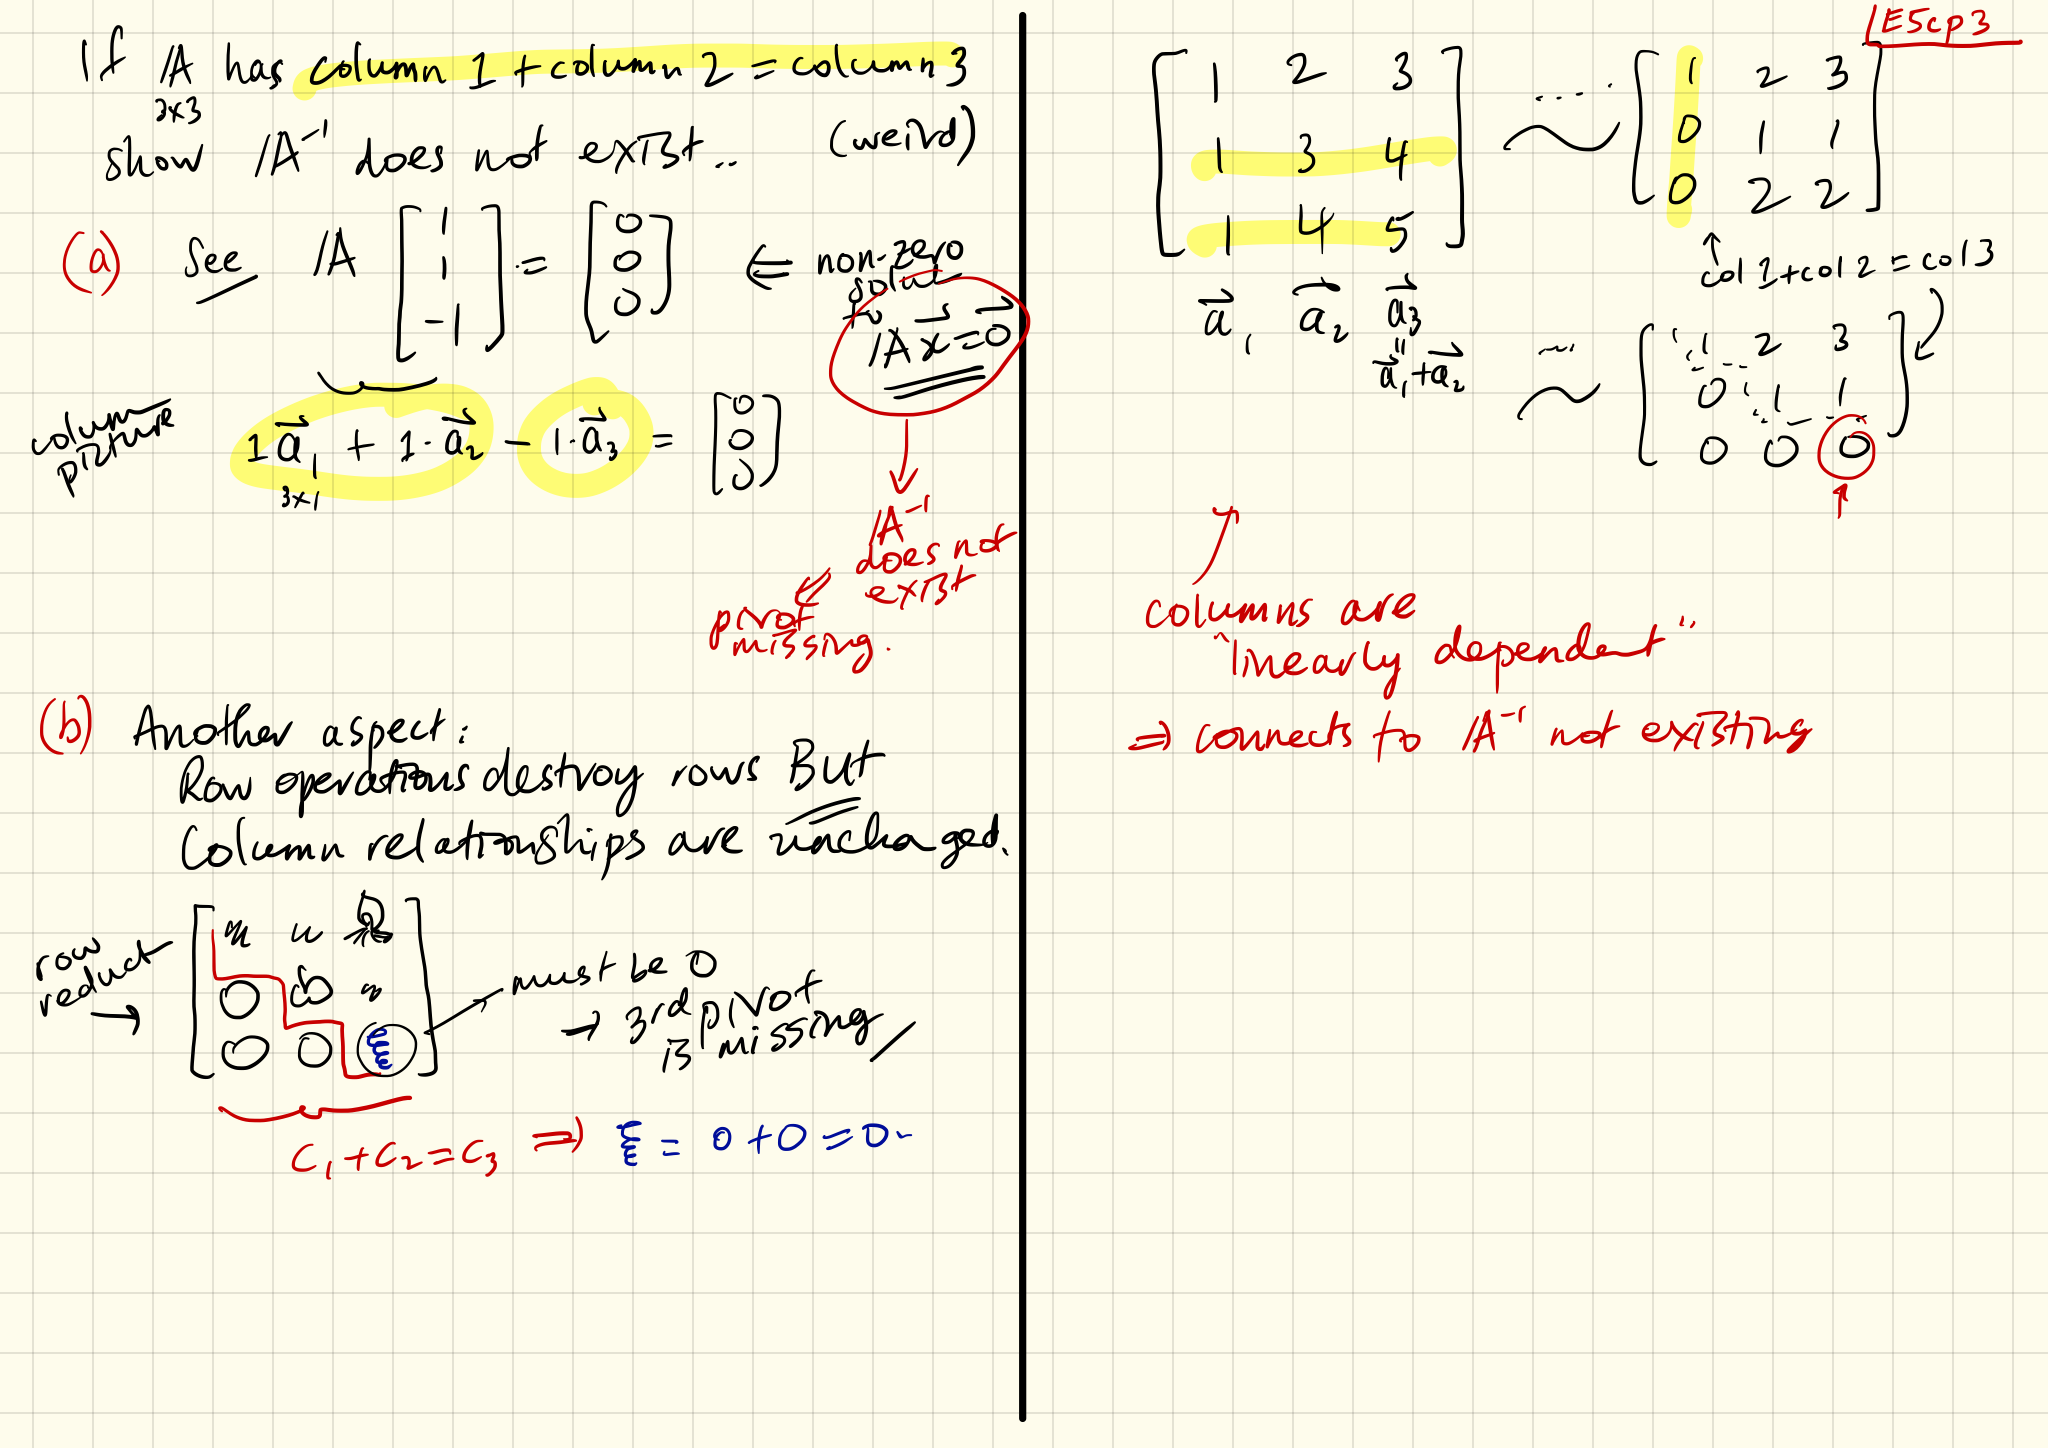 If A has column 1 + column 2 = column 3
3x3
show A⁻¹ does not exist.. (weird)
(a) See A [1 1 -1] = [0 0 0] ⇐ non-zero
solut
to
Ax⃗ = 0⃗
column
picture
1a⃗₁ + 1·a⃗₂ - 1·a⃗₃ = [0 0 0]
3x1
A⁻¹
does not
exist
⇐
pivot
missing.
(b) Another aspect:
Row operations destroy rows BUt
Column relationships are unchaged.
row
reduct
→
0
0 0 ξ
must be 0
→ 3rd pivot
is missing
c₁ + c₂ = c₃ ⇒ ξ = 0 + 0 = 0
IE5cp3
1 2 3
1 3 4
1 4 5
.... ~
1 2 3
0 1 1
0 2 2
↑
col 1 + col 2 = col 3
a⃗₁ a⃗₂ a⃗₃
"
a⃗₁ + a⃗₂
~
1 2 3
0 1 1
0 0 0
↑
columns are
"linearly dependent"
⇒ connects to A⁻¹ not existing